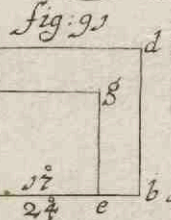 fig: 91
d
g
17̊
24̊ e b.